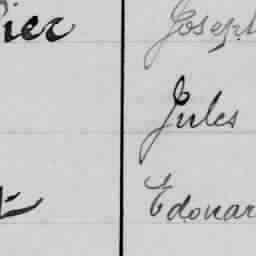 ier Joseph
Jules
t Edouar